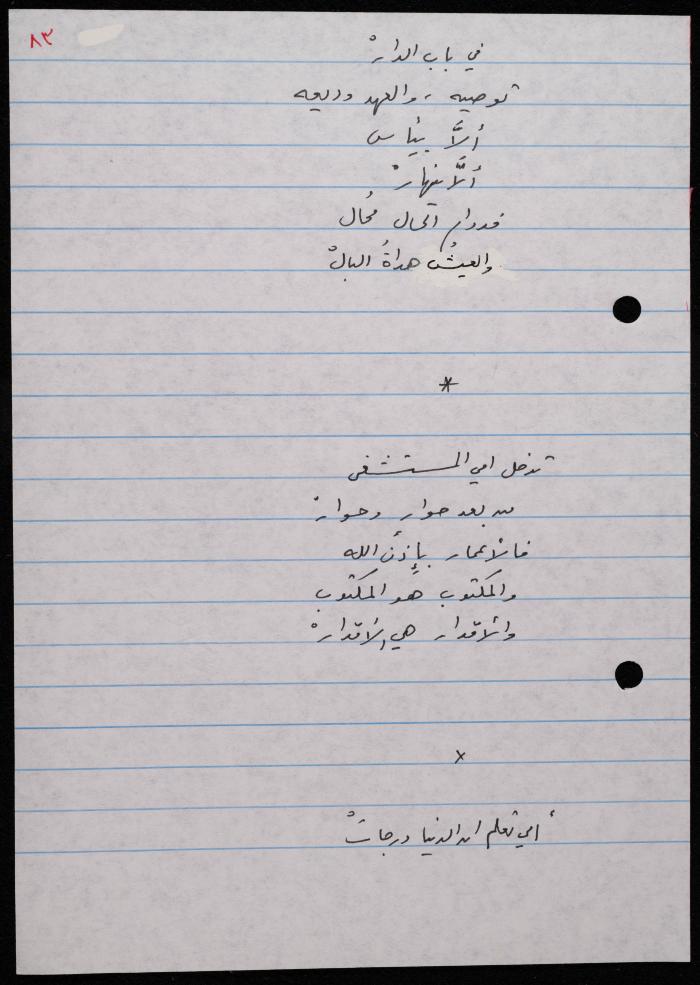 ٨٣
في باب الدارْ
توصيه ، والعهد وديعه
ألاَّ ييأس
ألاَّ ينهارْ
فدوام الحال مُحال
والعيشُ هداةُ البالْ
*
تدخل امي المستشفى
من بعد حوارٍ وحوارْ
فالأعمار بإذن الله
والمكتوب هو المكتوب
والأقدار هي الأقدارْ
×
أمي تعلم ان الدنيا درجاتْ